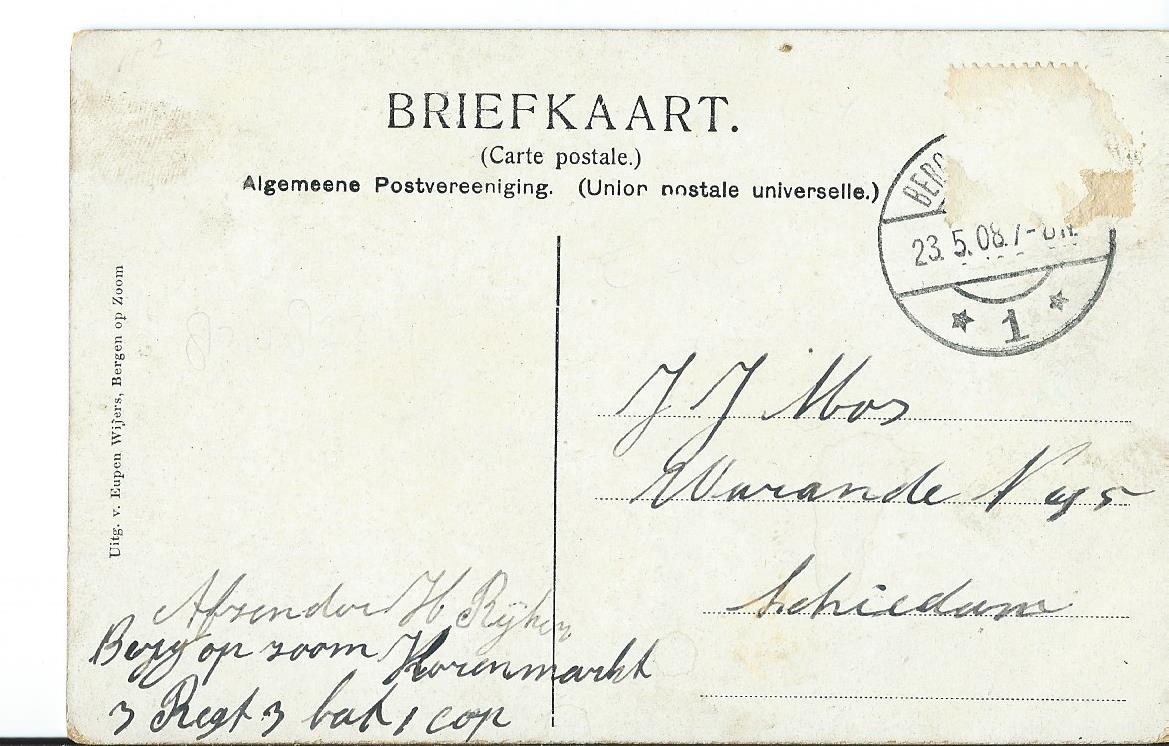 BRIEFKAART.
(Carte postale.)
Algemeene Postvereeniging. (Union postale universelle.)
BERG
23. 5. 08. 7-8 N.
1
Uitg. v. Eupen Wijers, Bergen op Zoom
J J Mos
Warande
Schiedam
Afzender H Rijken
Berg op zoom Korenmarkt
3 Regt 3 bat 1 cop